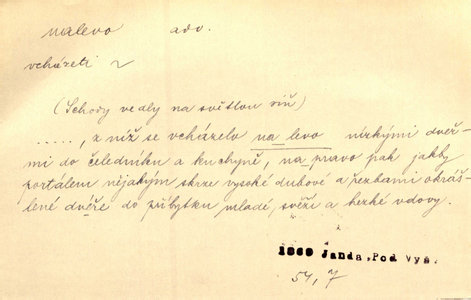 nalevo adv.
vcházeti ~
(Schody vedly na světlou síň)
....., z níž se vcházelo na levo nízkými dveř-
mi do čeledníku a kuchyně, na pravo pak jakby
portálem nějakým skrze vysoké dubové a řezbami okráš-
lené dvéře do příbytku mladé, svěží a hezké vdovy.
1869 Janda, Pod Vyš.
54, 7